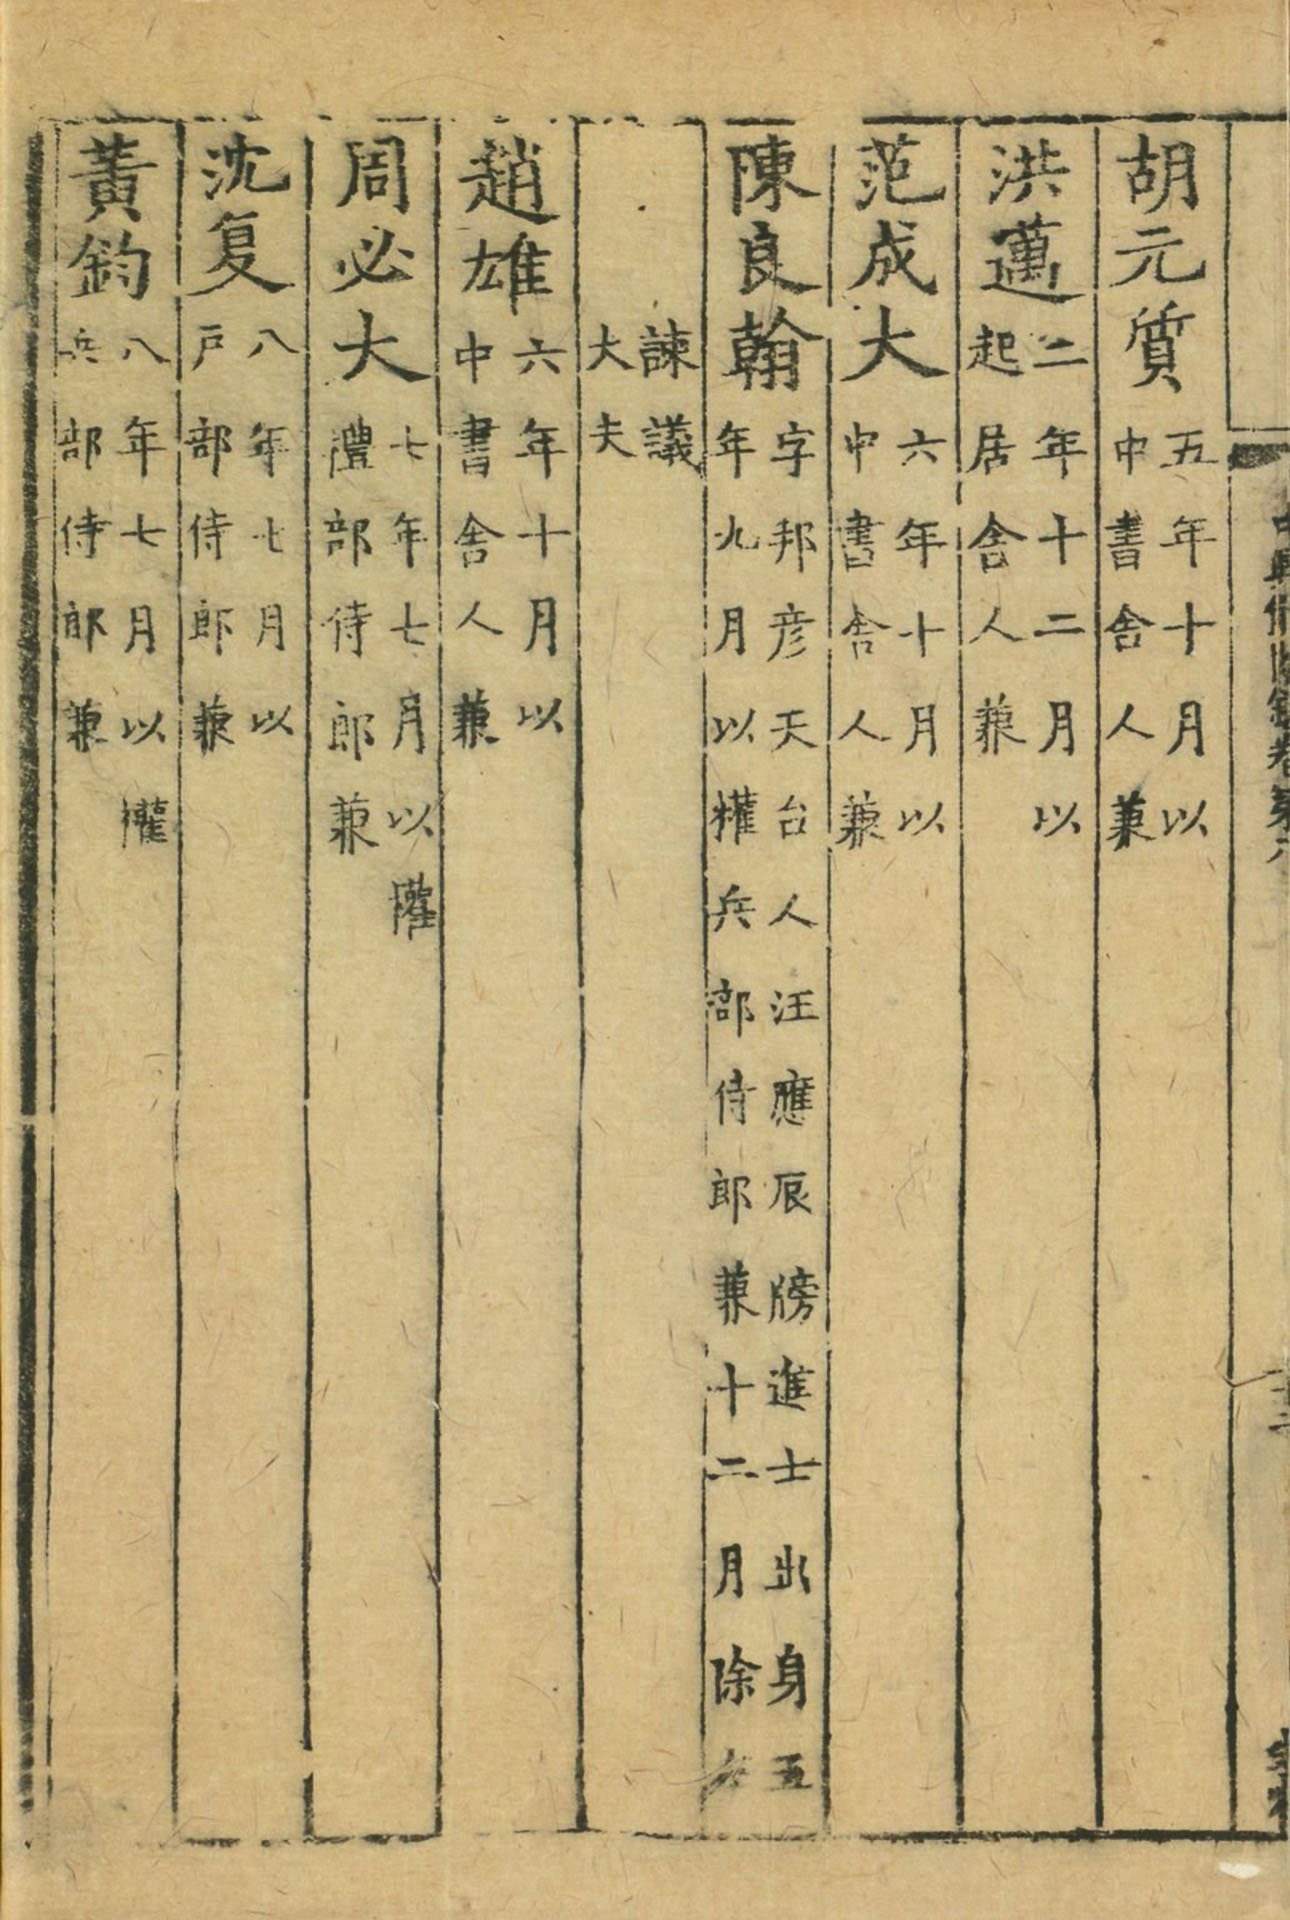 胡元質五年十月以中書舎人兼
洪邁二年十二月以起居舎人兼
范成大六年十月以中書舎人兼
陳良翰字邦彦天台人汪應辰牓進士出身五年九月以權兵部侍郎兼十二月除右
諫議大夫
趙雄六年十月以中書舎人兼
周必大七年七月以權禮部侍郎兼
沈复八年七月以戸部侍郎兼
黃鈞八年七月以權兵部侍郎兼